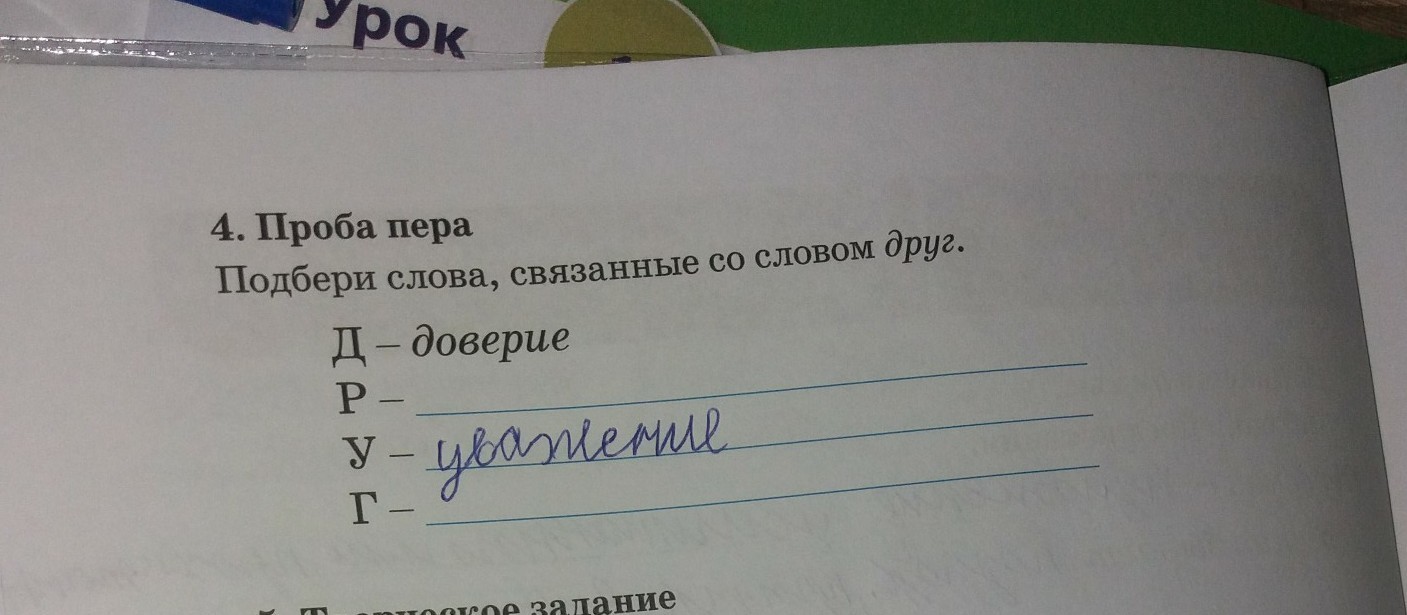 Урок
4. Проба пера
Подбери слова, связанные со словом друг.
Д – доверие
Р –
У – уважение
Г –
5. Творческое задание